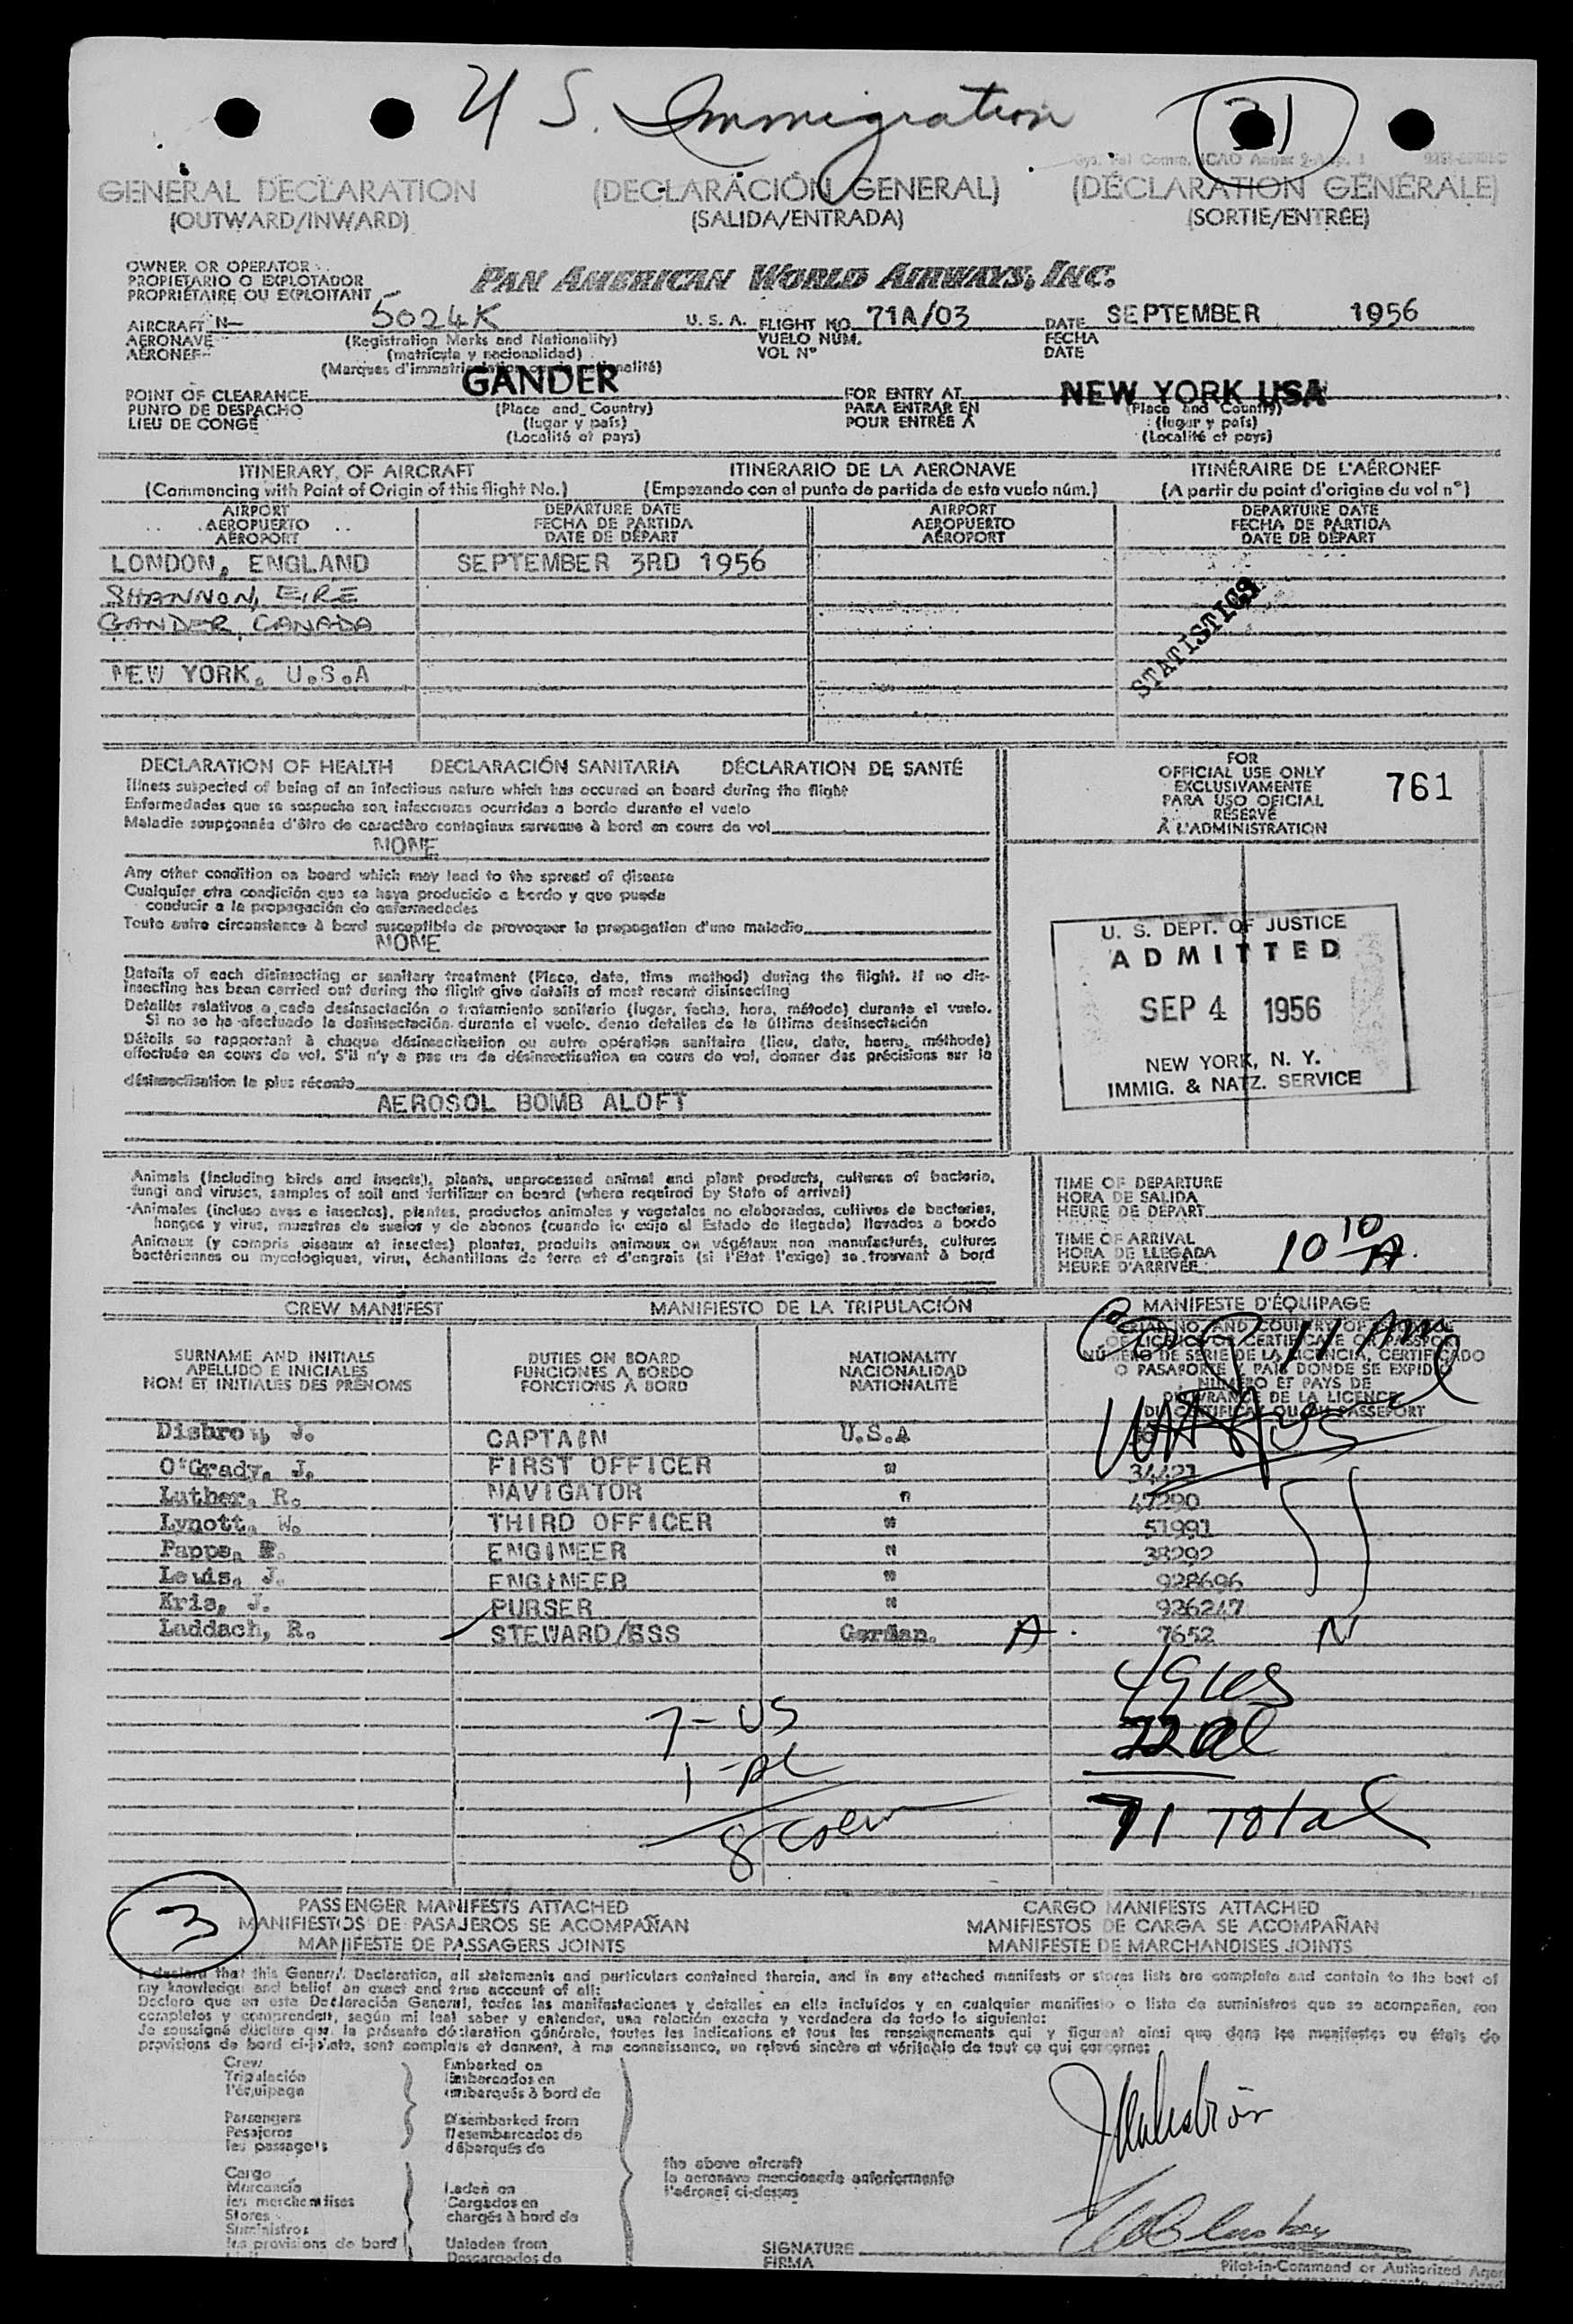 U S. Immigration
31
GENERAL DECLARATION (DECLARACIÓN GENERAL) (DÉCLARATION GÉNÉRALE)
(OUTWARD/INWARD) (SALIDA/ENTRADA) (SORTIE/ENTRÉE)
OWNER OR OPERATOR
PROPIETARIO O EXPLOTADOR
PROPRIÉTAIRE OU EXPLOITANT
PAN AMERICAN WORLD AIRWAYS, INC.
AIRCRAFT N- 5024K U.S.A. FLIGHT NO. 71A/03 DATE SEPTEMBER 1956
AERONAVE (Registration Marks and Nationality) VUELO NÚM. FECHA
AÉRONEF (matrícula y nacionalidad) VOL Nº DATE
(Marques d'immatriculation ou de nationalité)
POINT OF CLEARANCE GANDER FOR ENTRY AT NEW YORK USA
PUNTO DE DESPACHO (Place and Country) PARA ENTRAR EN (Place and Country)
LIEU DE CONGÉ (lugar y país) POUR ENTRÉE À (lugar y país)
(Localité et pays) (Localité et pays)
ITINERARY OF AIRCRAFT ITINERARIO DE LA AERONAVE ITINÉRAIRE DE L'AÉRONEF
(Commencing with Point of Origin of this flight No.) (Empezando con el punto de partida de este vuelo núm.) (A partir du point d'origine du vol nº)
AIRPORT DEPARTURE DATE AIRPORT DEPARTURE DATE
AEROPUERTO FECHA DE PARTIDA AEROPUERTO FECHA DE PARTIDA
AÉROPORT DATE DE DÉPART AÉROPORT DATE DE DÉPART
LONDON, ENGLAND SEPTEMBER 3RD 1956
SHANNON, EIRE
GANDER, CANADA
STATISTICS
NEW YORK, U.S.A
DECLARATION OF HEALTH DECLARACIÓN SANITARIA DÉCLARATION DE SANTÉ
Illness suspected of being of an infectious nature which has occured on board during the flight
Enfermedades que se sospecha son infecciosas ocurridas a bordo durante el vuelo
Maladie soupçonnée d'être de caractère contagieux survenue à bord en cours de vol
NONE
Any other condition on board which may lead to the spread of disease
Cualquier otra condición que se haya producido a bordo y que pueda
conducir a la propagación de enfermedades
Toute autre circonstance à bord susceptible de provoquer la propagation d'une maladie
NONE
Details of each disinsecting or sanitary treatment (Place, date, time method) during the flight. If no dis-
insecting has been carried out during the flight give details of most recent disinsecting
Detalles relativos a cada desinsectación o tratamiento sanitario (lugar, fecha, hora, método) durante el vuelo.
Si no se ha efectuado la desinsectación durante el vuelo. dense detalles de la última desinsectación
Détails se rapportant à chaque désinsectisation ou autre opération sanitaire (lieu, date, heure, méthode)
effectuée en cours de vol. S'il n'y a pas eu de désinsectisation en cours de vol, donner des précisions sur la
désinsectisation la plus récente
AEROSOL BOMB ALOFT
FOR
OFFICIAL USE ONLY
EXCLUSIVAMENTE
PARA USO OFICIAL
RÉSERVÉ
À L'ADMINISTRATION
761
U. S. DEPT. OF JUSTICE
ADMITTED
SEP 4 1956
NEW YORK, N. Y.
IMMIG. & NATZ. SERVICE
Animals (including birds and insects), plants, unprocessed animal and plant products, cultures of bacteria,
fungi and viruses, samples of soil and fertilizer on board (where required by State of arrival)
Animales (incluso aves e insectos), plantas, productos animales y vegetales no elaborados, cultivos de bacterias,
hongos y virus, muestras de suelos y de abonos (cuando lo exija el Estado de llegada) llevados a bordo
Animaux (y compris oiseaux et insectes) plantes, produits animaux ou végétaux non manufacturés, cultures
bactériennes ou mycologiques, virus, échantillons de terre et d'engrais (si l'État l'exige) se trouvant à bord
TIME OF DEPARTURE
HORA DE SALIDA
HEURE DE DÉPART
TIME OF ARRIVAL
HORA DE LLEGADA
HEURE D'ARRIVÉE
10 10 A.
CREW MANIFEST MANIFIESTO DE LA TRIPULACIÓN MANIFESTE D'ÉQUIPAGE
SURNAME AND INITIALS DUTIES ON BOARD NATIONALITY
APELLIDO E INICIALES FUNCIONES A BORDO NACIONALIDAD
NOM ET INITIALES DES PRÉNOMS FONCTIONS À BORD NATIONALITÉ
NÚMERO DE SERIE DE LA LICENCIA, CERTIFICADO
O PASAPORTE Y PAÍS DONDE SE EXPIDIÓ
NUMÉRO ET PAYS DE
DÉLIVRANCE DE LA LICENCE
DU CERTIFICAT OU DU PASSEPORT
11 Am
Disbrow, J. CAPTAIN U.S.A
O'Grady, J. FIRST OFFICER " 34421
Luther, R. NAVIGATOR " 47290
Lynott, W. THIRD OFFICER " 51991
Papps, ENGINEER " 38292
Lewis, J. ENGINEER " 928696
Kris, J. PURSER " 926247
Laddach, R. STEWARD/ESS German. A 7652 N
49 US
7 - US
22 al
1 - al
8 crew
71 Total
3
PASSENGER MANIFESTS ATTACHED CARGO MANIFESTS ATTACHED
MANIFIESTOS DE PASAJEROS SE ACOMPAÑAN MANIFIESTOS DE CARGA SE ACOMPAÑAN
MANIFESTE DE PASSAGERS JOINTS MANIFESTE DE MARCHANDISES JOINTS
I declare that this General Declaration, all statements and particulars contained therein, and in any attached manifests or stores lists are complete and contain to the best of
my knowledge and belief an exact and true account of all:
Declaro que en esta Declaración General, todas las manifestaciones y detalles en ella incluídos y en cualquier manifiesto o lista de suministros que se acompañen, son
completos y comprenden, según mi leal saber y entender, una relación exacta y verdadera de todo lo siguiente:
Je soussigné déclare que la présente déclaration générale, toutes les indications et tous les renseignements qui y figurent ainsi que dans les manifestes ou états de
provisions de bord ci-joints, sont complets et donnent, à ma connaissance, un relevé sincère et véritable de tout ce qui concerne:
Crew Embarked on
Tripulación Embarcados en
l'équipage embarqués à bord de
Passengers Disembarked from
Pasajeros Desembarcados de
les passagers débarqués de
the above aircraft
la aeronave mencionada anteriormente
l'aéronef ci-dessus
Cargo
Mercancía Laden on
les merchandises Cargados en
Stores chargés à bord de
Suministros
les provisions de bord Unladen from
Descargados de
SIGNATURE
FIRMA
Pilot-in-Command or Authorized Agent